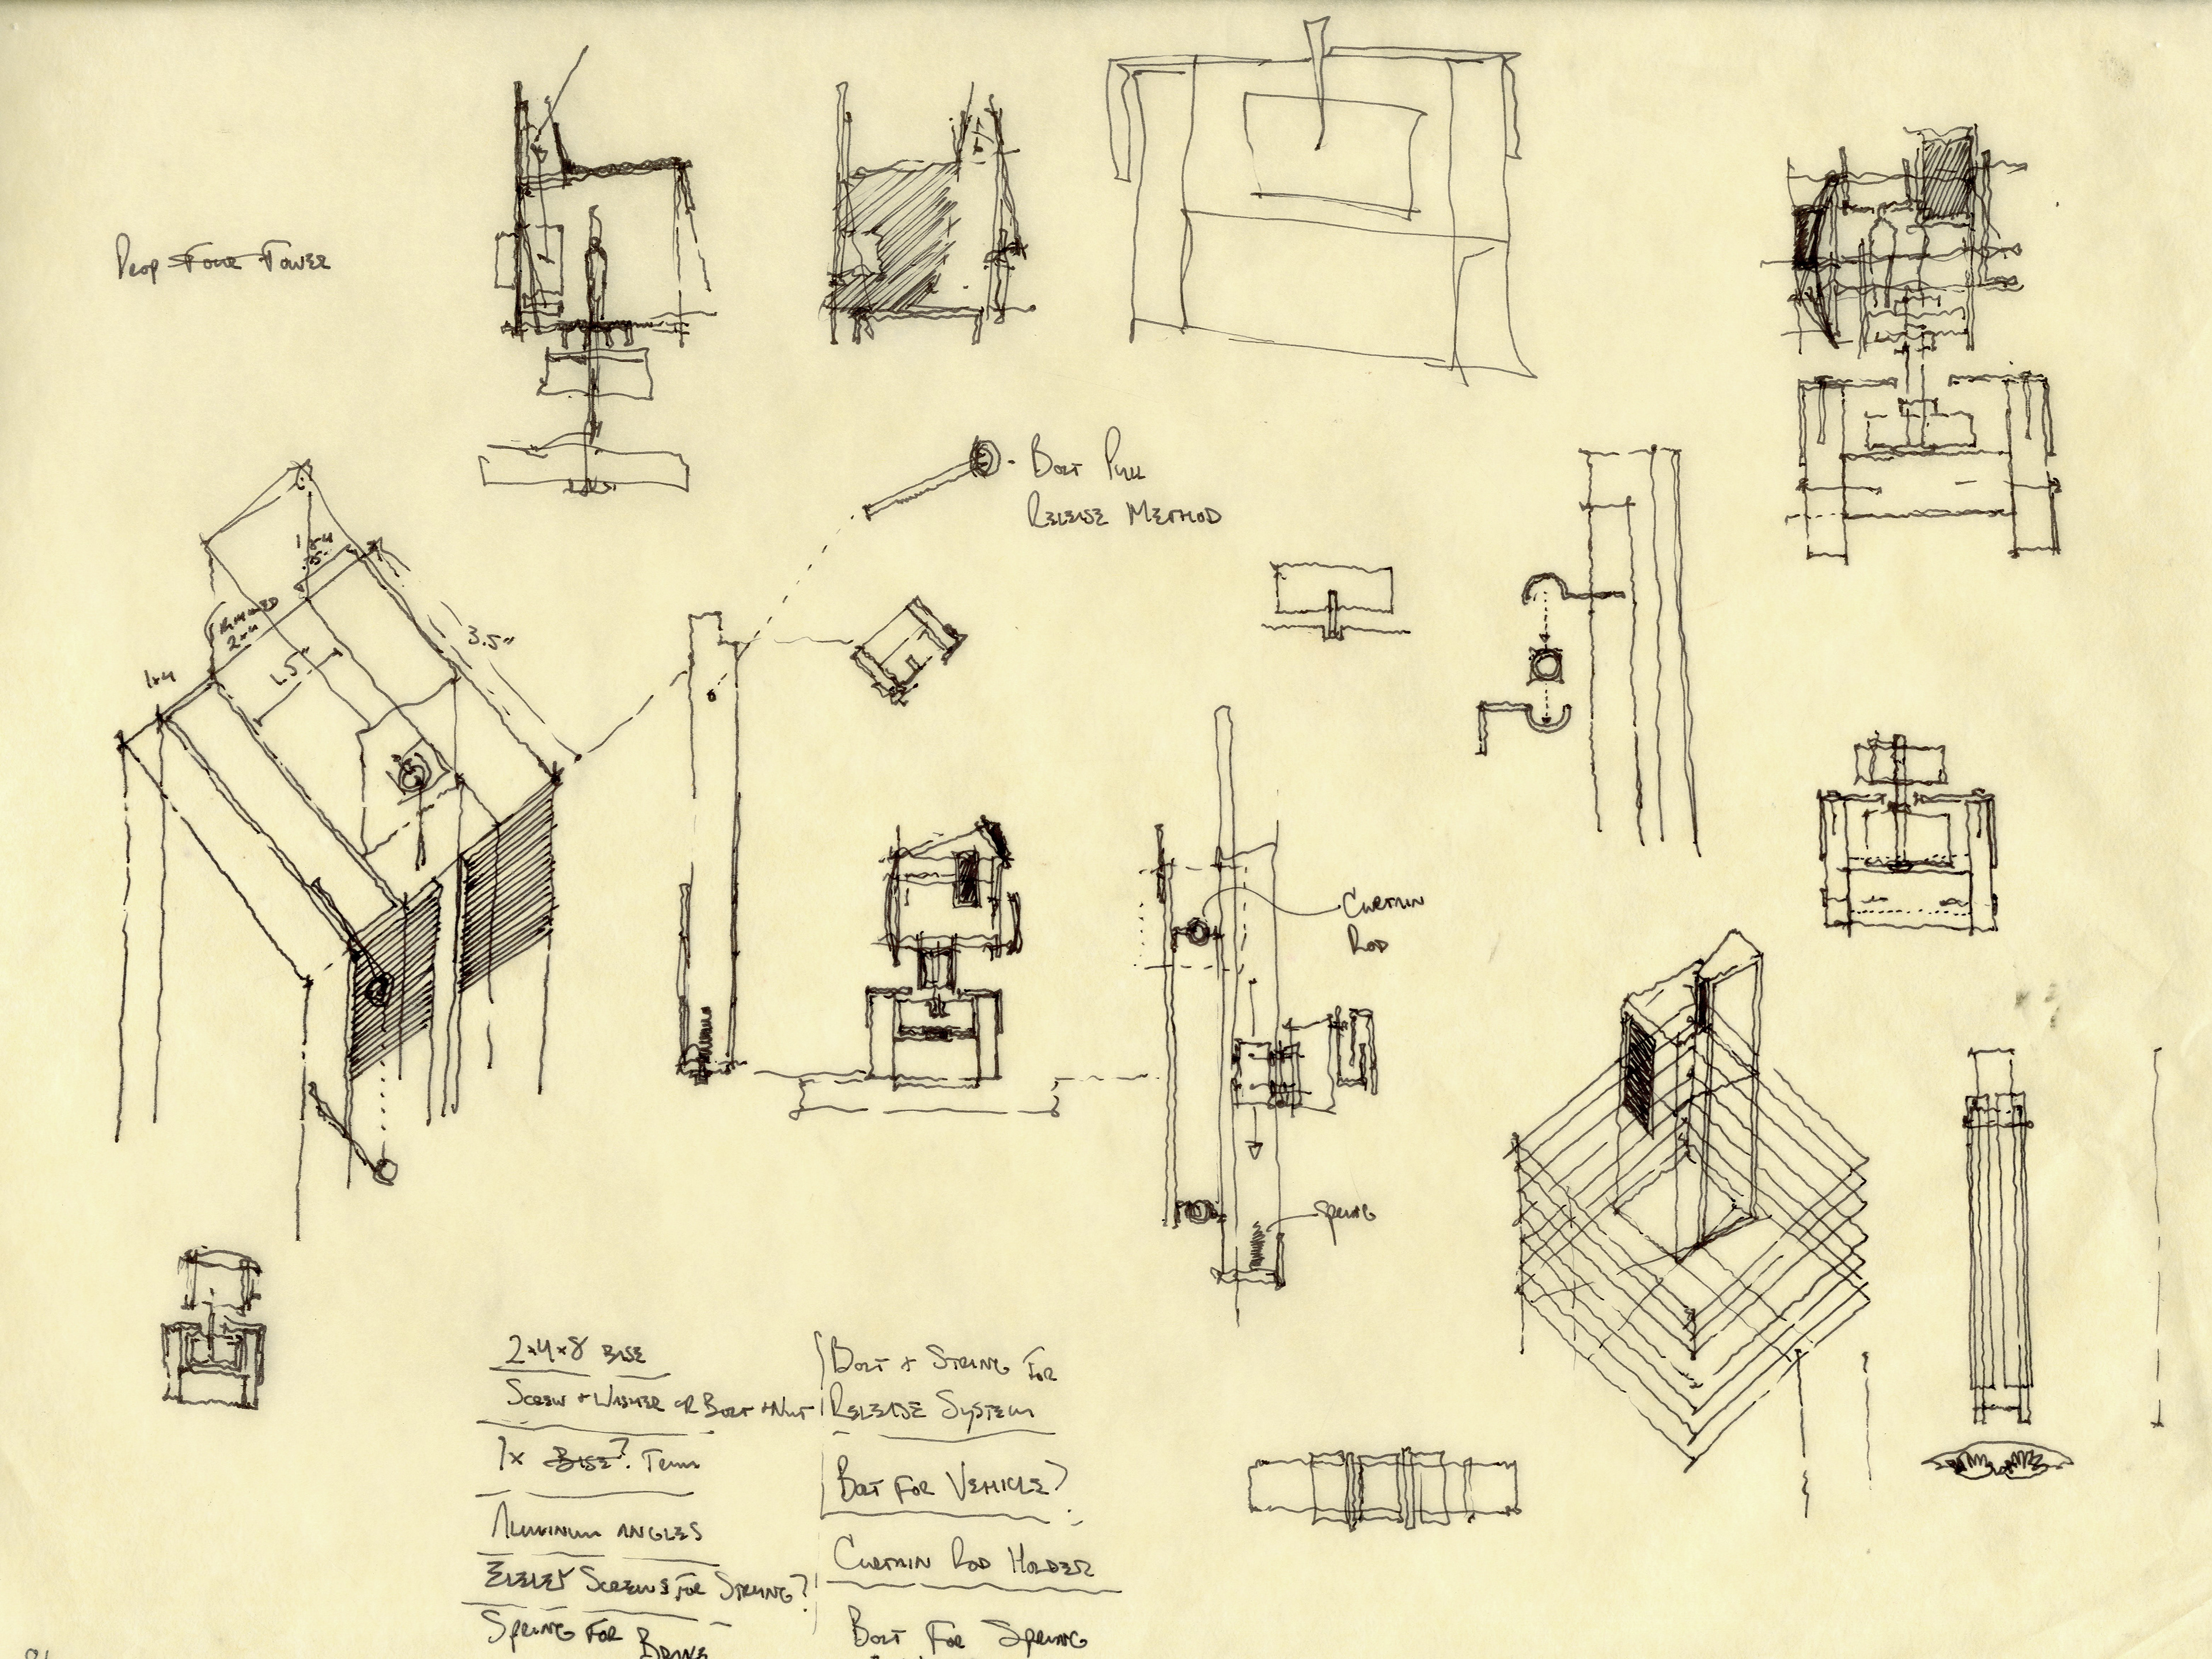 Drop Tower
Bolt Pull
Release Method
1x4
1.5"
2x4
1x4
1.5"
3.5"
Curtain
Rod
Spring
2x4x8 Base
Screw + Washer or Bolt + Nut
1x Base? Term
Aluminum Angles
Eyelet Screws for String?
Spring for Brake
Bolt + String for
Release System
Bolt for Vehicle?
Curtain Rod Holder
Bolt for Spring